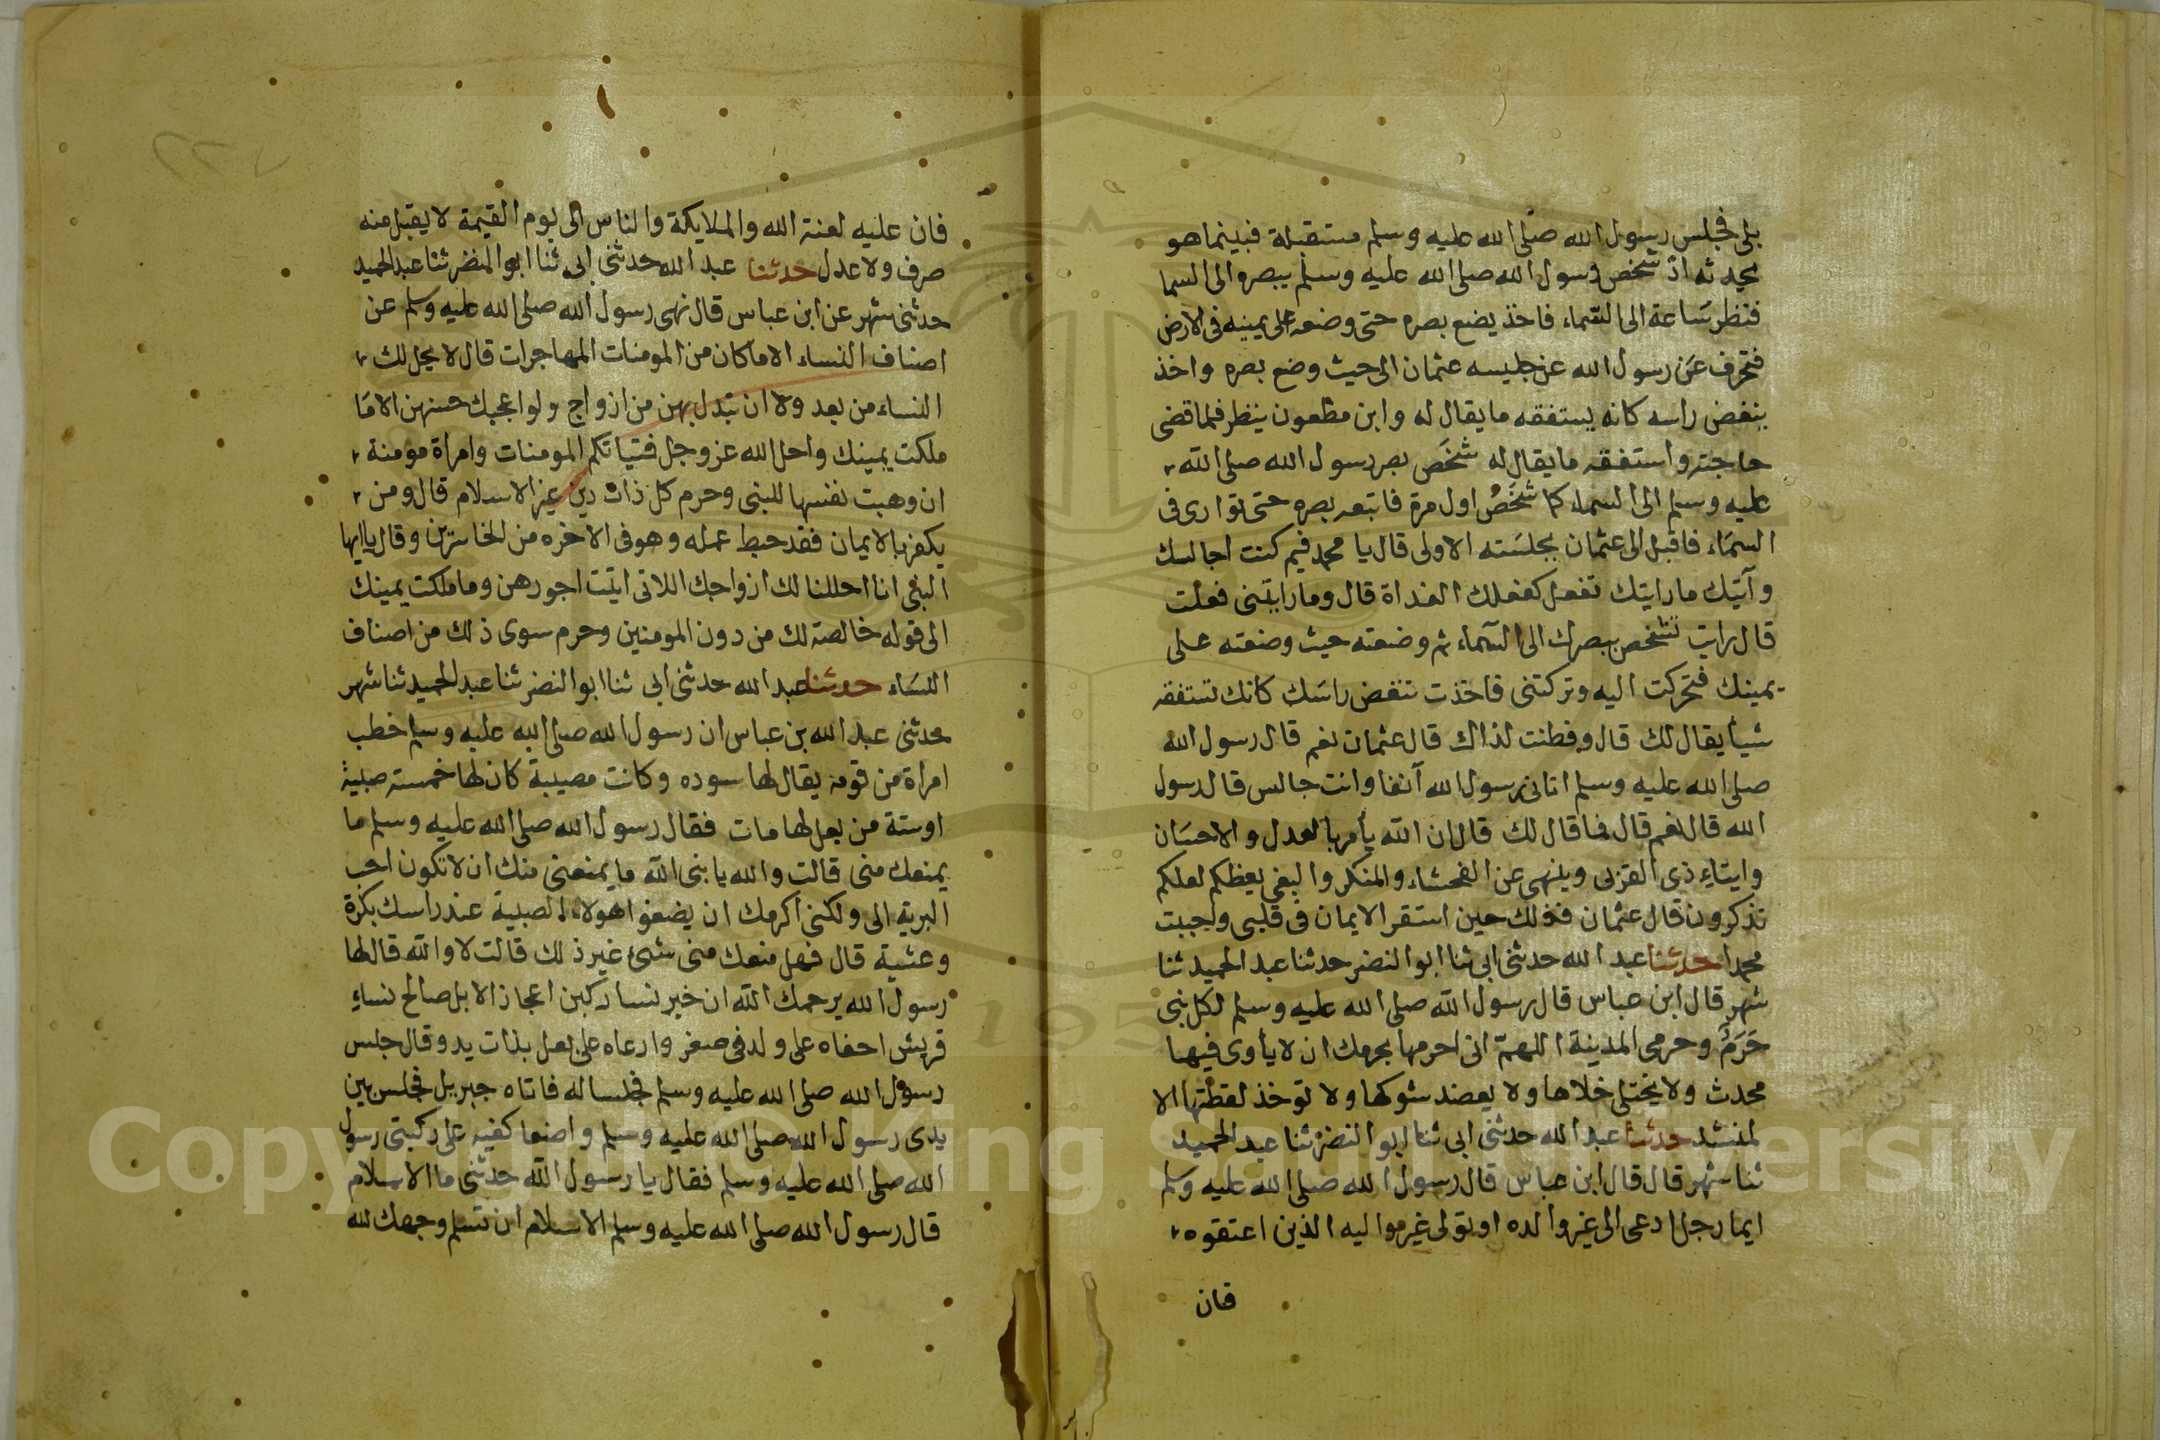 بلى فجلس رسول الله صلى الله عليه وسلم مستقبله فبينما هو
يحدثه اذ شخص رسول الله صلى الله عليه وسلم ببصره الى السما
فنظر ساعة الى السماء فاخذ يضع بصره حتى وضعه على يمينه فى الارض
فتحرف عن رسول الله عن جليسه عثمان الى حيث وضع بصره واخذ
ينغض راسه كانه يستفقه ما يقال له وابن مظعون ينظر فلما قضى
حاجته واستفقه ما يقال له شخص بصر رسول الله صلى الله
عليه وسلم الى السماء كما شخص اول مرة فاتبعه بصره حتى توارى فى
السماء فاقبل الى عثمان بجلسته الاولى قال يا محمد فيم كنت اجالسك
وآتيك ما رايتك تفعل كفعلك الغداة قال وما رايتنى فعلت
قال رايت تشخص ببصرك الى السماء ثم وضعته حيث وضعته على
يمينك فتحركت اليه وتركتنى فاخذت تنغض راسك كانك تستفقه
شيأ يقال لك قال وفطنت لذاك قال عثمان نعم قال رسول الله
صلى الله عليه وسلم اتانى رسول الله آنفا وانت جالس قال رسول
الله قال نعم قال فما قال لك قال ان الله يأمر بالعدل والاحسان
وايتاء ذى القربى وينهى عن الفحشاء والمنكر والبغى يعظكم لعلكم
تذكرون قال عثمان فذلك حين استقر الايمان فى قلبى واحببت
محمدا حدثنا عبد الله حدثنى ابى ثنا ابو النضر حدثنا عبد الحميد ثنا
شهر قال ابن عباس قال رسول الله صلى الله عليه وسلم لكل نبى
حرم وحرمى المدينة اللهم انى احرمها بحرمك ان لا يأوى فيها
محدث ولا يختلى خلاها ولا يعضد شوكها ولا توخذ لقطتها الا
لمنشد حدثنا عبد الله حدثنى ابى ثنا ابو النضر ثنا عبد الحميد
ثنا شهر قال قال ابن عباس قال رسول الله صلى الله عليه وسلم
ايما رجل ادعى الى غير والده او تولى غير مواليه الذين اعتقوه
فان
فان عليه لعنة الله والملايكة والناس الى يوم القيمة لا يقبل منه
صرف ولا عدل حدثنا عبد الله حدثنى ابى ثنا ابو النضر ثنا عبد الحميد
حدثنى شهر عن ابن عباس قال نهى رسول الله صلى الله عليه وسلم عن
اصناف النساء الا ما كان من المومنات المهاجرات قال لا يحل لك
النساء من بعد ولا ان تبدل بهن من ازواج ولو اعجبك حسنهن الا ما
ملكت يمينك واحل الله عز وجل فتياتكم المومنات وامراة مومنة
ان وهبت نفسها للنبى وحرم كل ذات دين غير الاسلام قال ومن
يكفر بالايمان فقد حبط عمله وهو فى الاخره من الخاسرين وقال يا ايها
النبى انا احللنا لك ازواجك اللاتى اتيت اجورهن وما ملكت يمينك
الى قوله خالصة لك من دون المومنين وحرم سوى ذلك من اصناف
النساء حدثنا عبد الله حدثنى ابى ثنا ابو النضر ثنا عبد الحميد ثنا شهر
حدثنى عبد الله بن عباس ان رسول الله صلى الله عليه وسلم خطب
امراة من قومه يقال لها سوده وكانت مصيبة كان لها خمسة صبية
اوستة من بعل لها مات فقال رسول الله صلى الله عليه وسلم ما
يمنعك منى قالت والله يا نبى الله ما يمنعنى منك ان لا تكون احب
البرية الى ولكنى اكرمك ان يضغوا هولاء الصبية عند راسك بكرة
وعشية قال فهل منعك منى شئ غير ذلك قالت لا والله قال لها
رسول الله يرحمك الله ان خير نسا ركبن اعجاز الابل صالح نساء
قريش احفاه على ولد فى صغر وارعاه على بعل بذات يد وقال جلس
رسول الله صلى الله عليه وسلم مجلسا له فاتاه جبريل فجلس بين
يدى رسول الله صلى الله عليه وسلم واضعا كفيه على ركبتى رسول
الله صلى الله عليه وسلم فقال يا رسول الله حدثنى ما الاسلام
قال رسول الله صلى الله عليه وسلم الاسلام ان تسلم وجهك لله